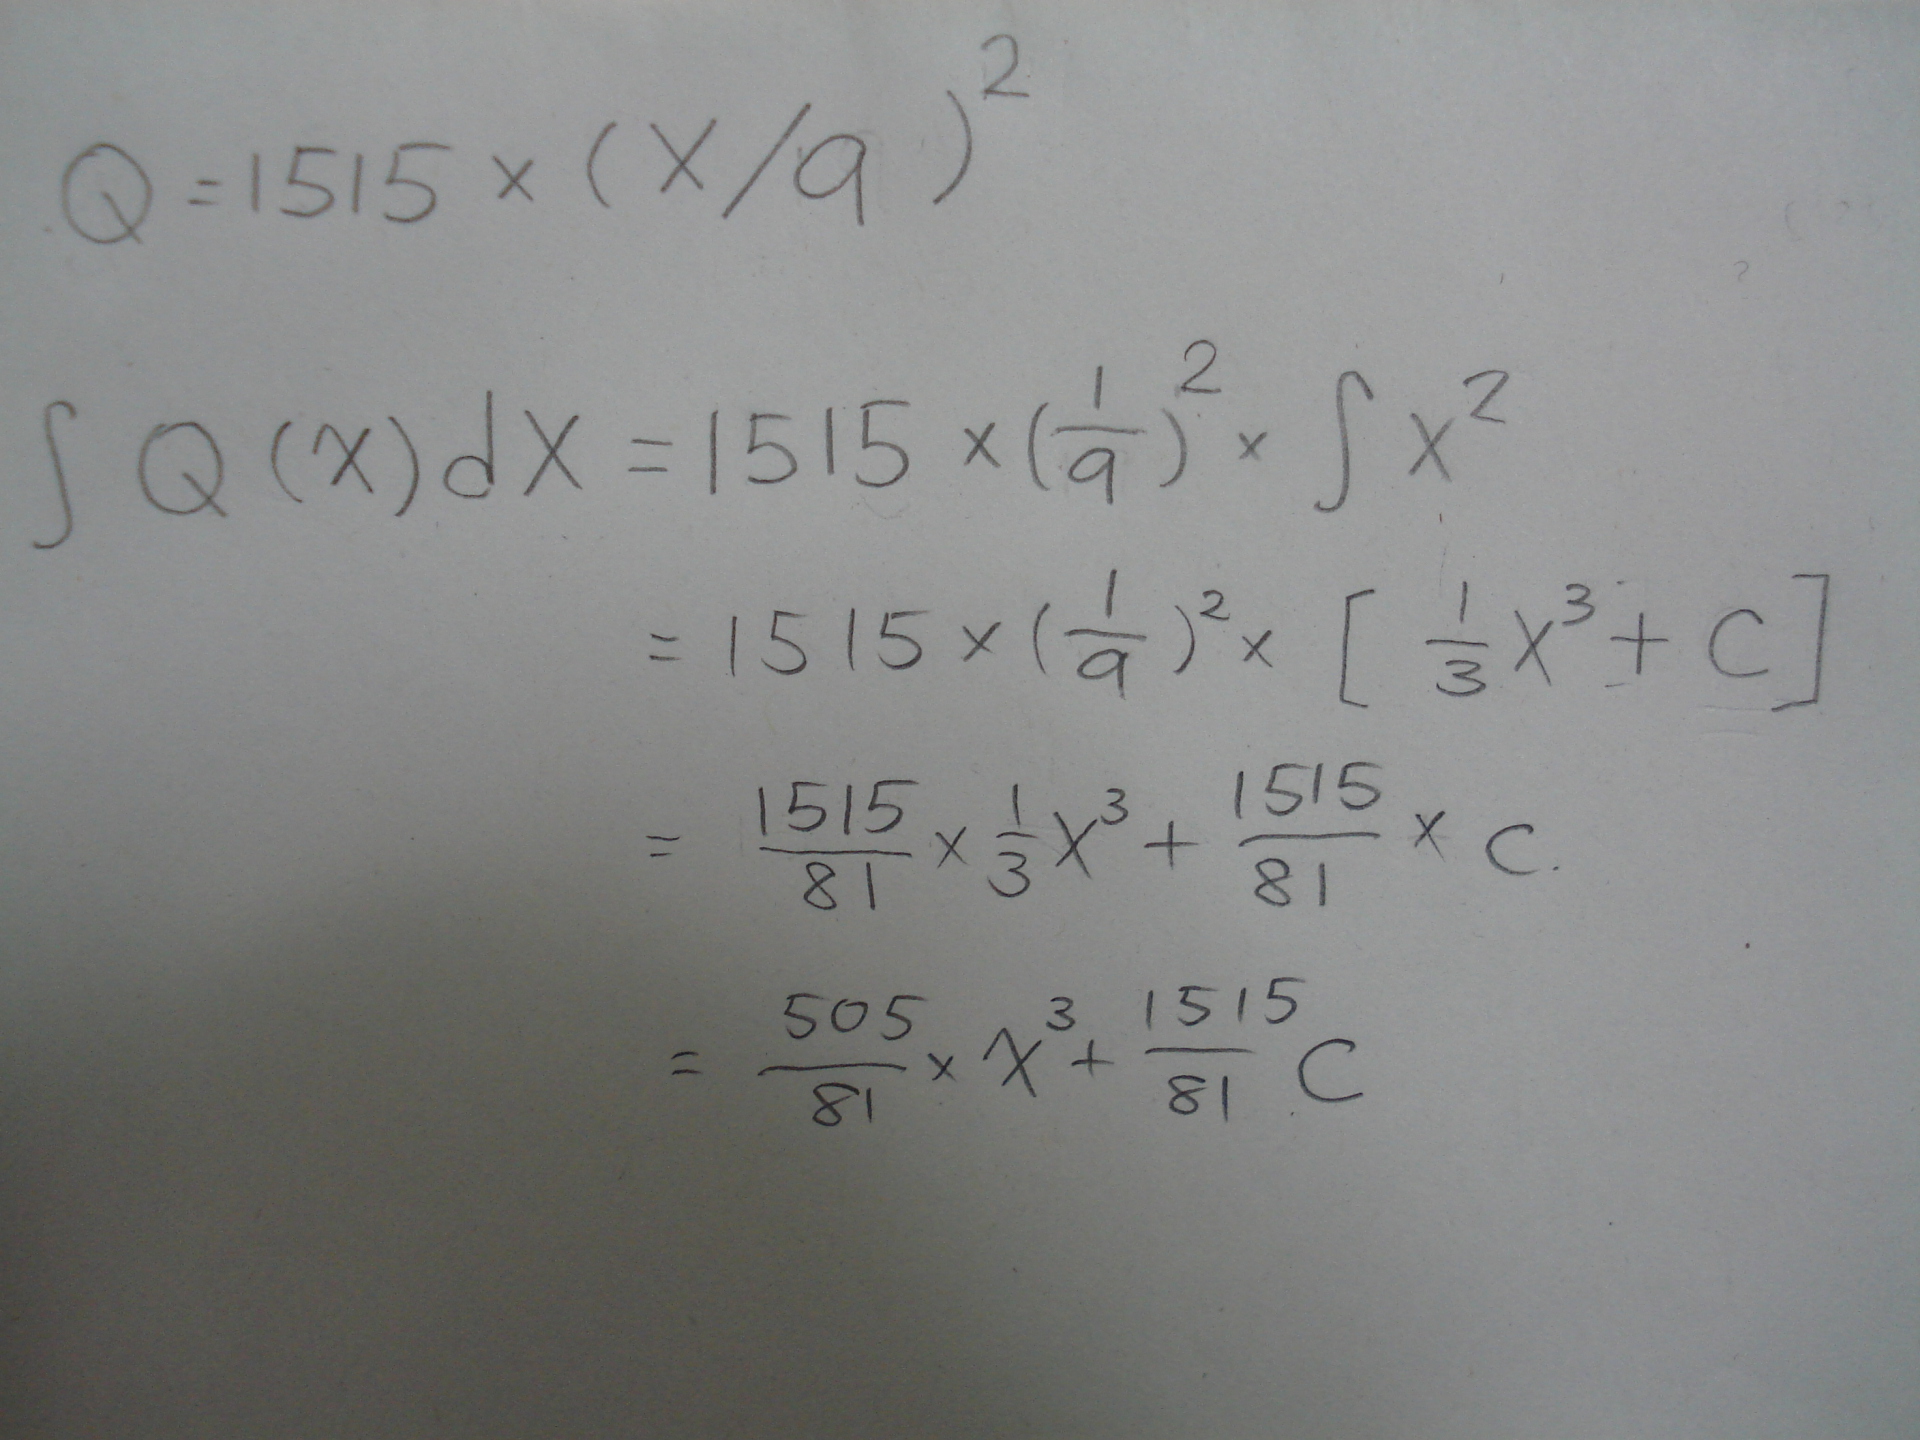 Q = 1515 × (X/9)²
∫ Q (X) dX = 1515 × (1/9)² × ∫ X²
= 1515 × (1/9)² × [ 1/3 X³ + C ]
= 1515/81 × 1/3 X³ + 1515/81 × C.
= 505/81 × X³ + 1515/81 C